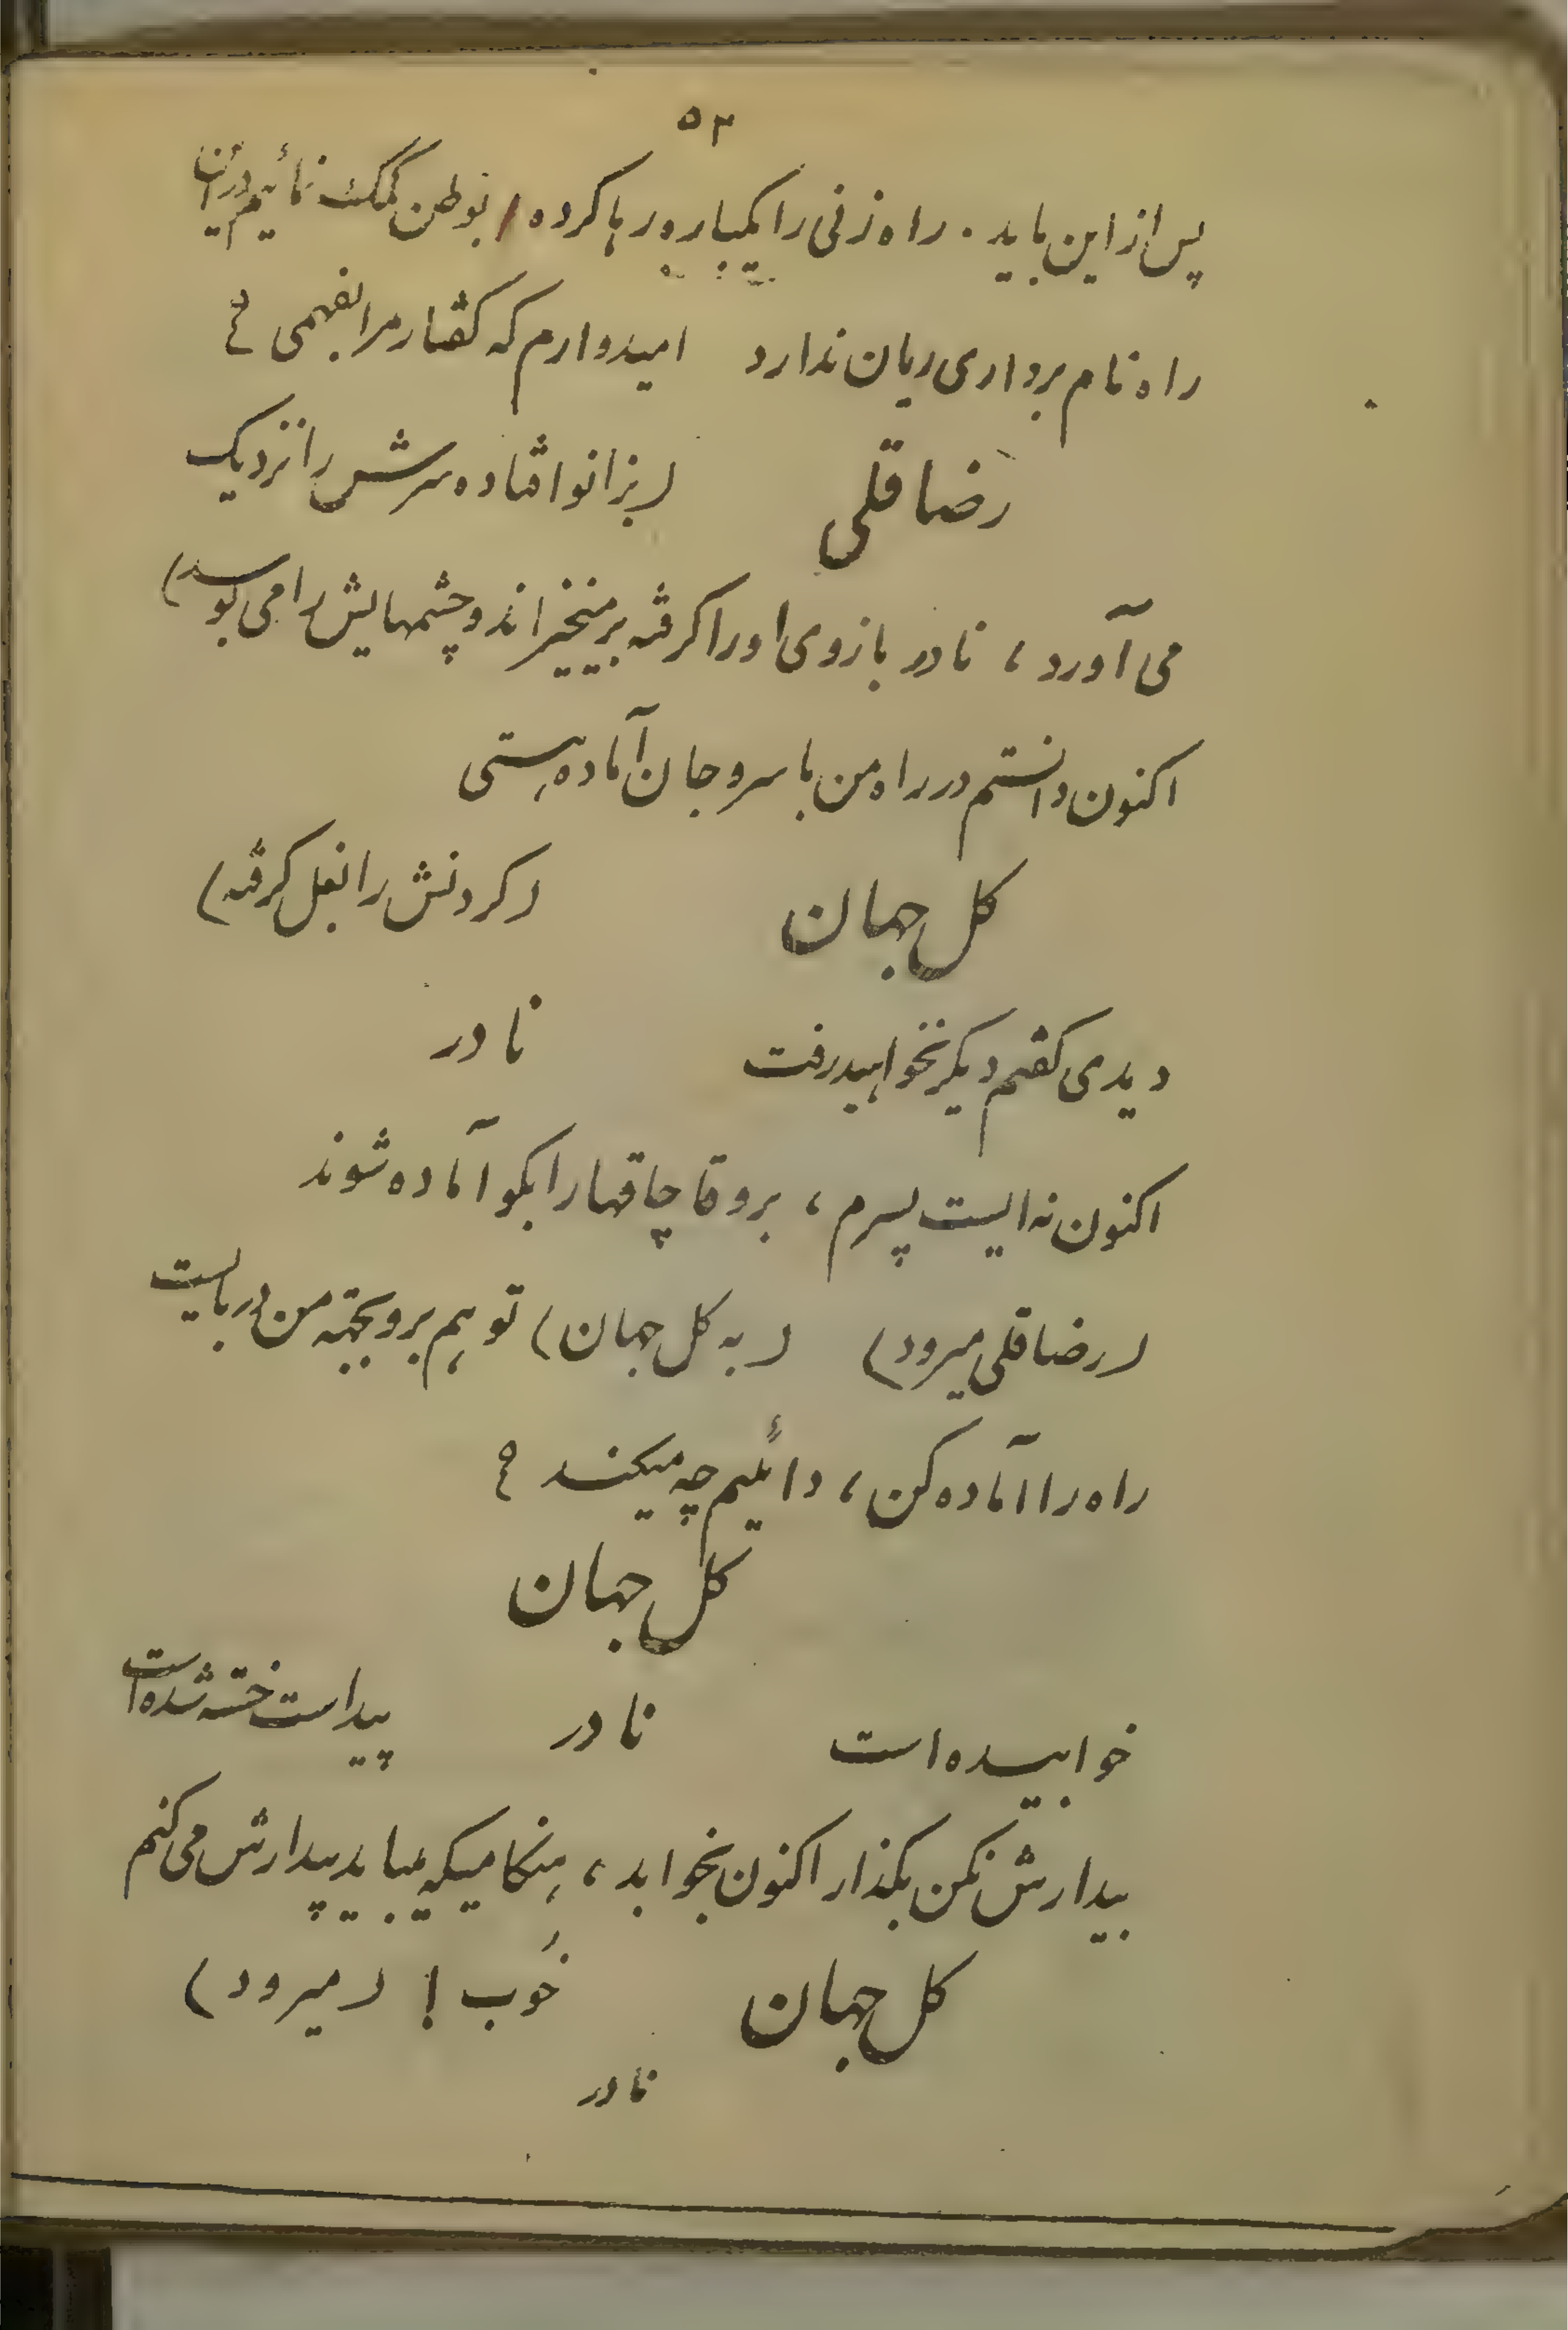 ۵۳
پس از این باید . راه زنی را یکباره ور رها کرده / بوطن کمک نمائیم در این
راه نام برداری زیان ندارد امیدوارم که کفتار مرا بفهمی ؟
رضا قلی (بزانو افتاده سرش را نزدیک
می آورد ، نادر بازوی او را کرفته برمیخیزاند و چشمهایش را می بوسد)
اکنون دانستم در راه من با سر و جان آماده هستی
کل جهان (کردنش را بغل کرفته)
دیدی کفتم دیکر نخواهید رفت نادر
اکنون نه ایست پسرم ، برو قاچاقها را بکو آماده شوند
(رضا قلی میرود) (به کل جهان) تو هم برو بجهته من دربایست
راه را آماده کن ، دائیم چه میکند ؟
کل جهان
خوابیده است نادر پیداست خسته شده است
بیدارش نکن بکذار اکنون بخوابد ، هنکامیکه میباید بیدارش می کنم
کل جهان خُوب ! (میرود)
نادر